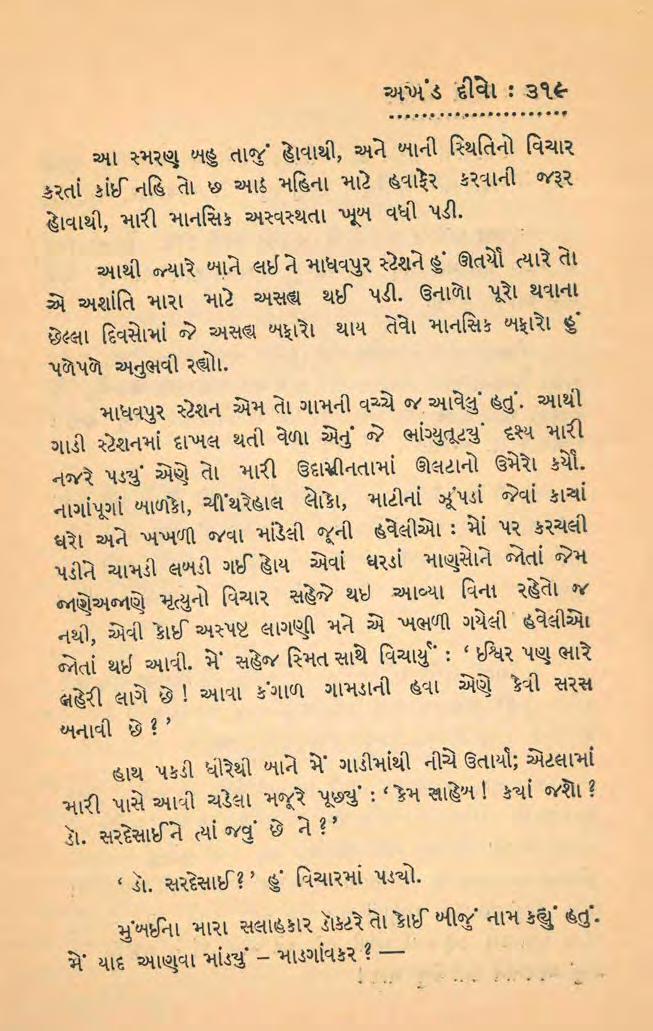 અખંડ દીવો : ૩૧૯
આ સ્મરણ બહુ તાજું હોવાથી, અને બાની સ્થિતિનો વિચાર
કરતાં કાંઈ નહિ તો છ આઠ મહિના માટે હવાફેર કરવાની જરૂર
હોવાથી, મારી માનસિક અસ્વસ્થતા ખૂબ વધી પડી.
આથી જ્યારે બાને લઈને માધવપુર સ્ટેશને હું ઊતર્યો ત્યારે તો
એ અશાંતિ મારા માટે અસહ્ય થઈ પડી. ઉનાળો પૂરો થવાના
છેલ્લા દિવસોમાં જે અસહ્ય બફારો થાય તેવો માનસિક બફારો હું
પળેપળે અનુભવી રહ્યો.
માધવપુર સ્ટેશન એમ તો ગામની વચ્ચે જ આવેલું હતું. આથી
ગાડી સ્ટેશનમાં દાખલ થતી વેળા એનું જે ભાંગ્યુતૂટ્યું દૃશ્ય મારી
નજરે પડ્યું એણે તો મારી ઉદાસીનતામાં ઊલટાનો ઉમેરો કર્યો.
નાગાંપૂગાં બાળકો, ચીંથરેહાલ લોકો, માટીનાં ઝૂંપડાં જેવાં કાચાં
ઘરો અને ખખળી જવા માંડેલી જૂની હવેલીઓ : મોં પર કરચલી
પડીને ચામડી લબડી ગઈ હોય એવાં ઘરડાં માણસોને જોતાં જેમ
જાણેઅજાણે મૃત્યુનો વિચાર સહેજે થઇ આવ્યા વિના રહેતો જ
નથી, એવી કોઈ અસ્પષ્ટ લાગણી મને એ ખભળી ગયેલી હવેલીઓ
જોતાં થઇ આવી. મેં સહેજ સ્મિત સાથે વિચાર્યું : ‘ ઈશ્વર પણ ભારે
લહેરી લાગે છે ! આવા કંગાળ ગામડાની હવા એણે કેવી સરસ
બનાવી છે ? ’
હાથ પકડી ધીરેથી બાને મેં ગાડીમાંથી નીચે ઉતાર્યાં; એટલામાં
મારી પાસે આવી ચડેલા મજૂરે પૂછ્યું : ‘ કેમ સાહેબ ! ક્યાં જશો ?
ડૉ. સરદેસાઈને ત્યાં જવું છે ને ? ’
‘ ડૉ. સરદેસાઈ ? ’ હું વિચારમાં પડ્યો.
મુંબઈના મારા સલાહકાર ડૉક્ટરે તો કોઈ બીજું નામ કહ્યું હતું.
મેં યાદ આણવા માંડ્યું – માડગાંવકર ? —